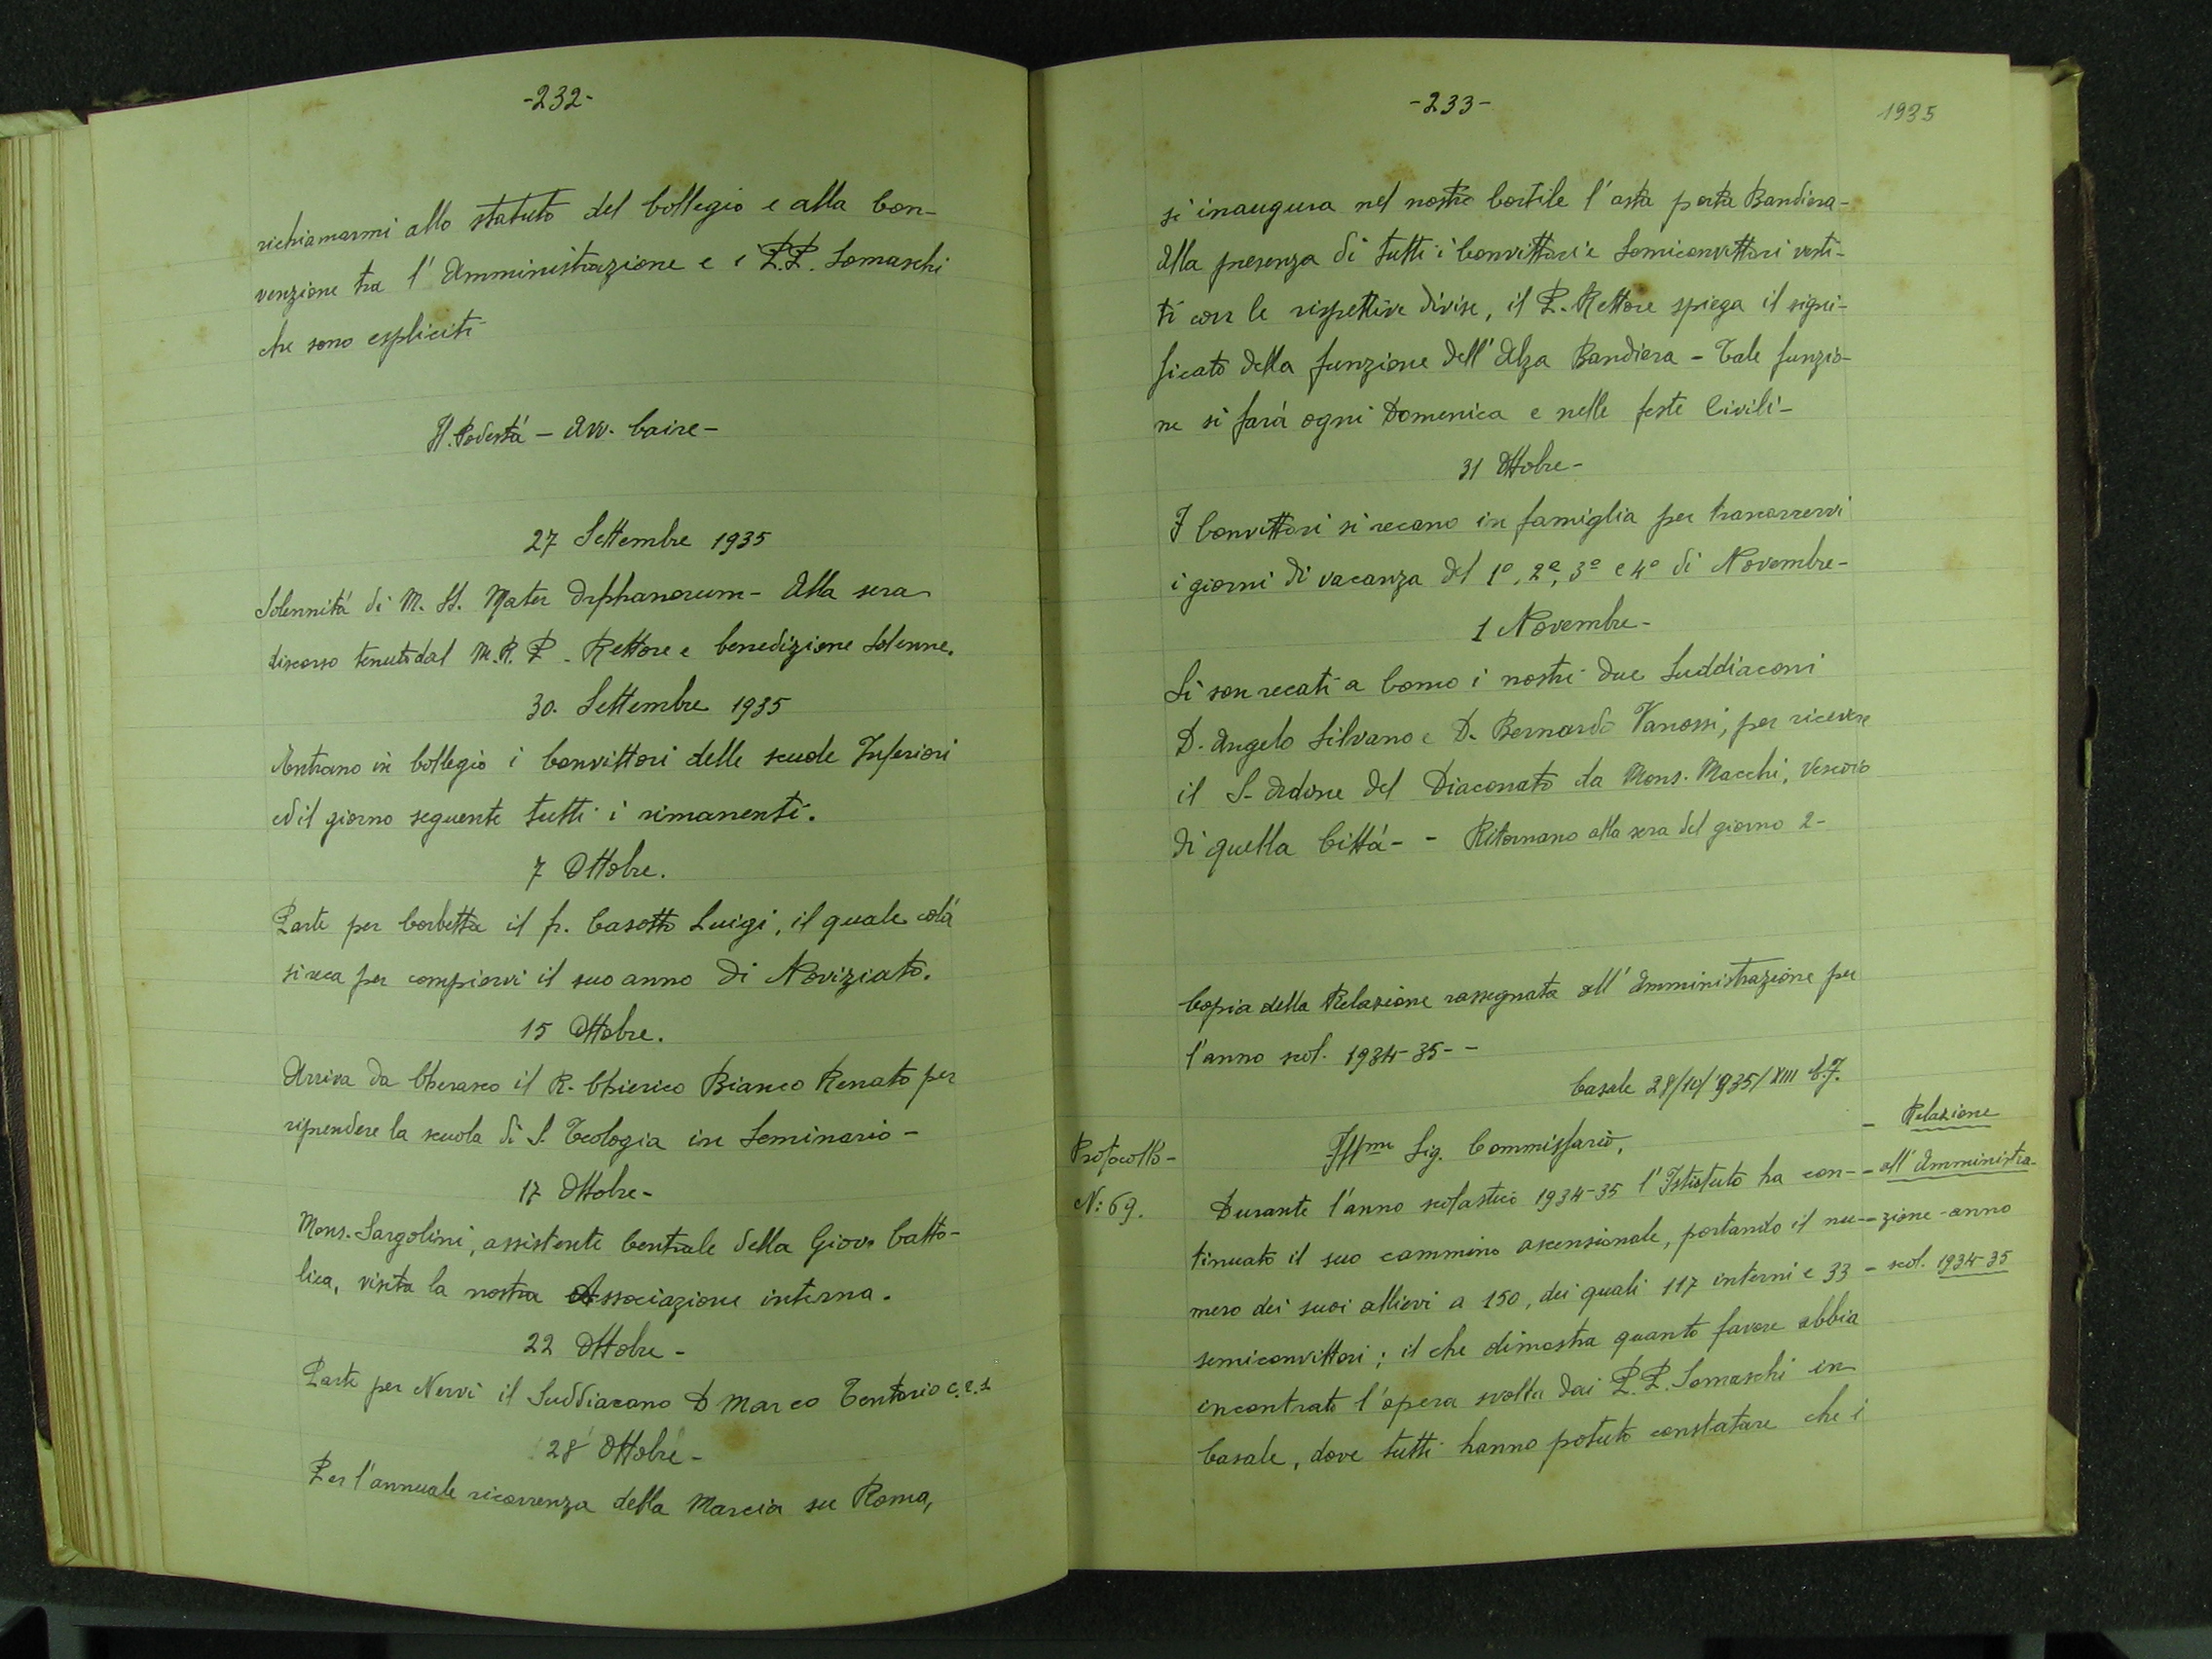 -232-
richiamarmi allo statuto del Collegio e alla Con-
venzione tra l'Amministrazione e i P.P. Somaschi
che sono espliciti
Il Podestà - Avv. Caire -
27 Settembre 1935
Solennità di M. SS. Mater Orphanorum - Alla sera
discorso tenuto dal M.R.P. Rettore e benedizione solenne.
30. Settembre 1935
Entrano in Collegio i Convittori delle scuole Inferiori
ed il giorno seguente tutti i rimanenti.
7 Ottobre.
Parte per Corbetta il fr. Casotto Luigi, il quale colà
si reca per compiervi il suo anno di Noviziato.
15 Ottobre.
Arriva da Cherasco il R. Chierico Bianco Renato per
riprendere la scuola di S. Teologia in Seminario -
17 Ottobre -
Mons. Sargolini, assistente Centrale della Giov. Catto-
lica, visita la nostra Associazione interna.
22 Ottobre -
Parte per Nervi il Suddiacono D Marco Tentorio c.r.s
28 Ottobre -
Per l'annuale ricorrenza della Marcia su Roma,
-233-
1935
si inaugura nel nostro Cortile l'asta porta Bandiera -
Alla presenza di tutti i Convittori e Semiconvittori vesti-
ti con le rispettive divise, il P. Rettore spiega il signi-
ficato della funzione dell'Alza Bandiera - Tale funzio-
ne si farà ogni Domenica e nelle feste Civili -
31 Ottobre -
I Convittori si recano in famiglia per trascorrervi
i giorni di vacanza del 1º, 2º, 3º e 4º di Novembre -
1 Novembre -
Si son recati a Como i nostri due Suddiaconi
D. Angelo Silvano e D. Bernardo Vanossi, per ricevere
il S. Ordine del Diaconato da Mons. Macchi, Vescovo
di quella Città - - Ritornano alla sera del giorno 2 -
Copia della Relazione rassegnata all'Amministrazione per
l'anno scol. 1934-35 - -
Casale 28/10/1935/XIII E.F.
Protocollo -
N: 69.
Ill.mo Sig. Commissario,
Durante l'anno scolastico 1934-35 l'Istituto ha con-
tinuato il suo cammino ascensionale, portando il nu-
mero dei suoi allievi a 150, dei quali 117 interni e 33
semiconvittori; il che dimostra quanto favore abbia
incontrato l'opera svolta dai P.P. Somaschi in
Casale, dove tutti hanno potuto constatare che i
- Relazione
- all'Amministra-
- zione - anno
- scol. 1934-35